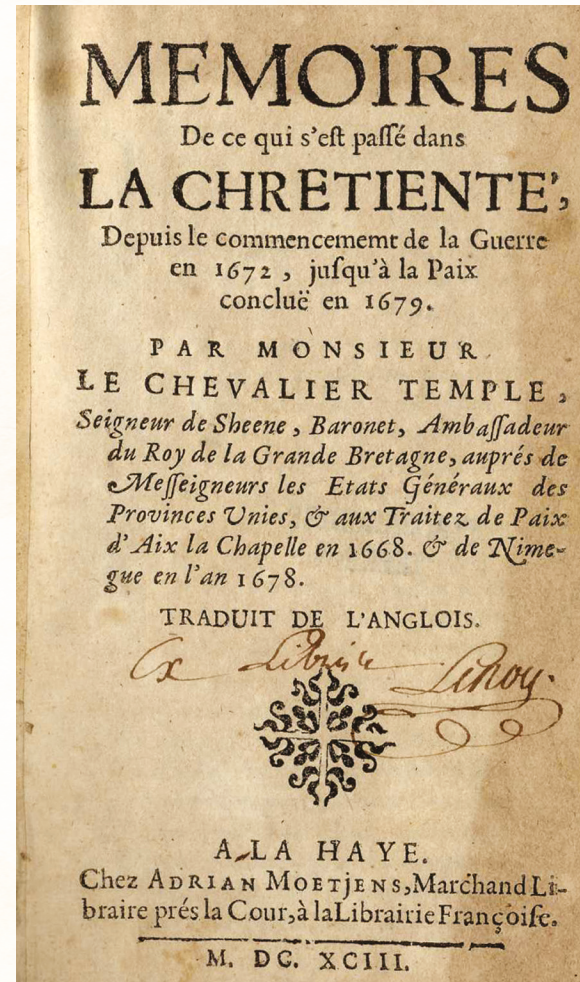 MEMOIRES
De ce qui s'eſt paſſé dans
LA CHRETIENTE',
Depuis le commencememt de la Guerre
en 1672, juſqu'à la Paix
concluë en 1679.
PAR MONSIEUR
LE CHEVALIER TEMPLE,
Seigneur de Sheene, Baronet, Ambaſſadeur
du Roy de la Grande Bretagne, auprés de
Meſſeigneurs les Etats Généraux des
Provinces Unies, & aux Traitez de Paix
d'Aix la Chapelle en 1668. & de Nime-
gue en l'an 1678.
TRADUIT DE L'ANGLOIS.
Ex Libris
A LA HAYE.
Chez ADRIAN MOETJENS, Marchand Li-
braire prés la Cour, à la Librairie Françoiſe.
M. DC. XCIII.